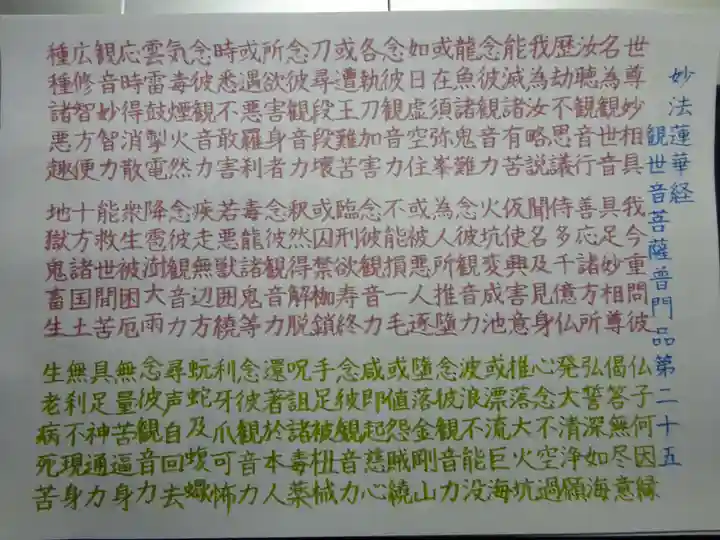 妙法蓮華経
観世音菩薩普門品第二十五
世尊妙相具 我今重問彼 仏子何因縁
名為観世音 具足妙相尊 偈答無尽意
汝聴観音行 善応諸方所 弘誓深如海
歴劫不思議 侍多千億仏 発大清浄願
我為汝略説 聞名及見身 心念不空過
能滅諸有苦 仮使興害意 推落大火坑
念彼観音力 火坑変成池 或漂流巨海
龍魚諸鬼難 念彼観音力 波浪不能没
或在須弥峯 為人所推墮 念彼観音力
如日虚空住 或被悪人逐 墮落金剛山
念彼観音力 不能損一毛 或値怨賊繞
各執刀加害 念彼観音力 咸即起慈心
或遭王難苦 臨刑欲寿終 念彼観音力
刀尋段段壊 或囚禁枷鎖 手足被杻械
念彼観音力 釈然得解脱 呪詛諸毒薬
所欲害身者 念彼観音力 還著於本人
或遇悪羅利 毒龍諸鬼等 念彼観音力
時悉不敢害 若悪獣囲繞 利牙爪可怖
念彼観音力 疾走無辺方 蚖蛇及蝮蠍
気毒煙火然 念彼観音力 尋声自回去
雲雷鼓掣電 降雹澍大雨 念彼観音力
応時得消散 衆生被困厄 無量苦逼身
観音妙智力 能救世間苦 具足神通力
広修智方便 十方諸国土 無利不現身
種種諸悪趣 地獄鬼畜生 生老病死苦